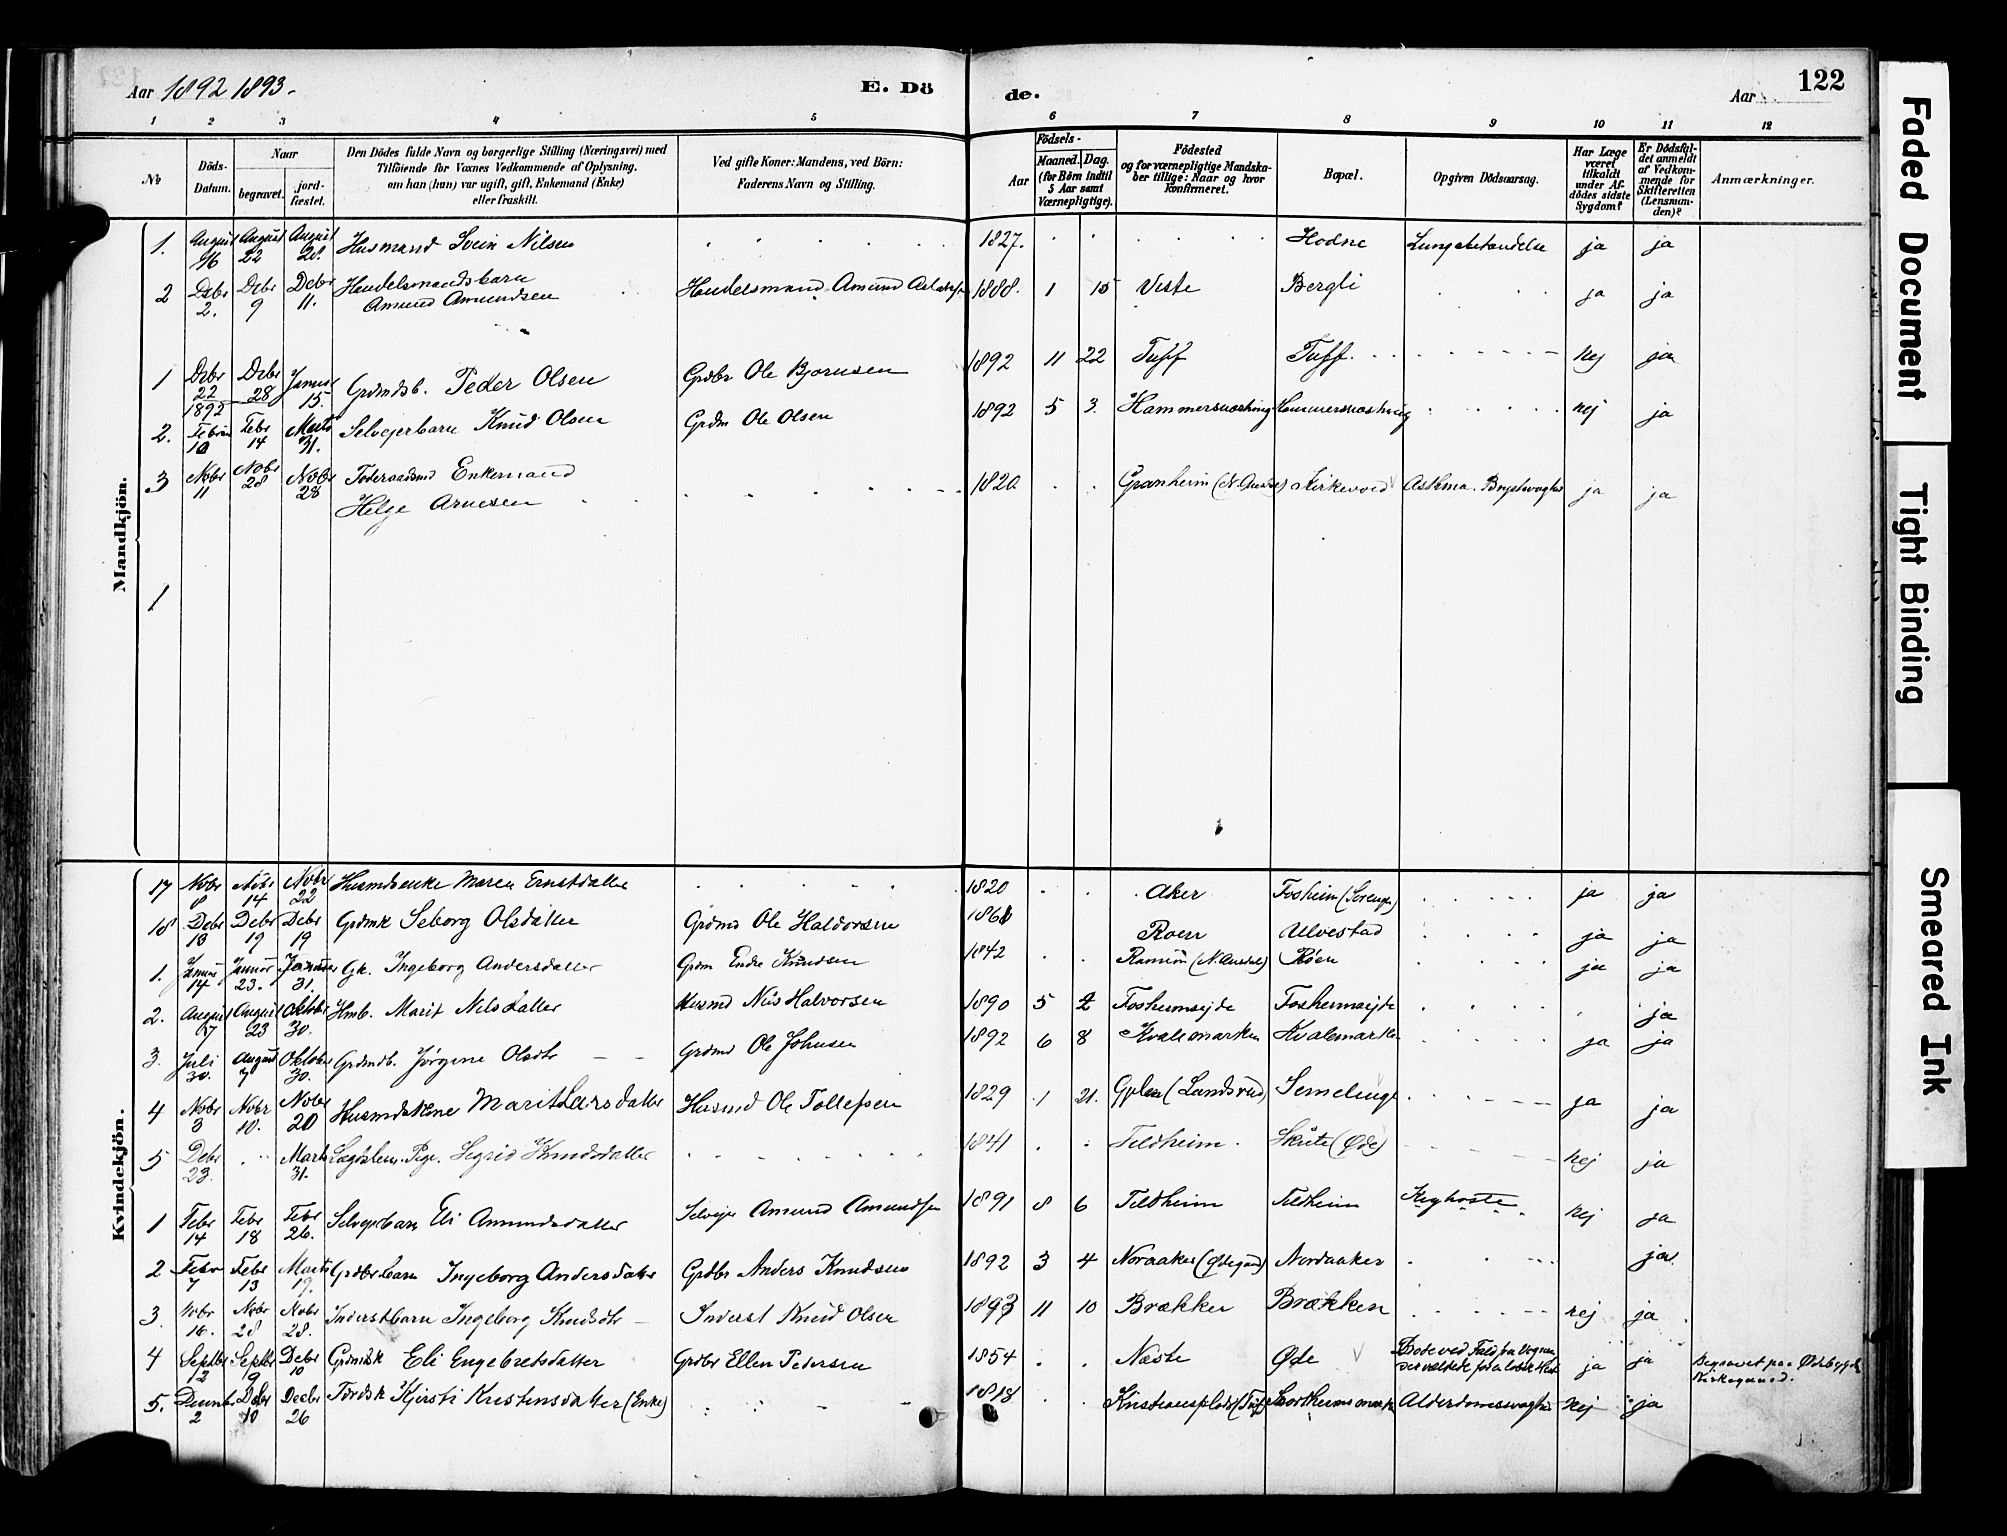 Aar 1892 1893.
E. Dö
de.
Aar
122
1 2 3 4 5 6 7 8 9 10 11 12
№
Döds-
Datum.
Naar
begravet.
jord-
fæstet.
Den Dödes fulde Navn og borgerlige Stilling (Næringsvei) med
Tilföiende for Voxnes Vedkommende af Oplysning,
om han (hun) var ugift, gift, Enkemand (Enke)
eller fraskilt.
Ved gifte Koner: Mandens, ved Börn:
Faderens Navn og Stilling.
Födsels-
Aar
Maaned. Dag.
(for Børn indtil
5 Aar samt
Værnepligtige).
Födested
og for værnepligtige Mandska-
ber tillige: Naar og hvor
konfirmeret.
Bopæl.
Opgiven Dödsaarsag.
Har Læge
været
tilkaldt
under Af-
dödes sidste
Sygdom?
Er Dödsfal-
det anmeldt
af Vedkom-
mende for
Skifteretten
(Lensman-
den)?
Anmærkninger.
Mandkjön.
1. August 16 August 22 August 21. Husmand Svein Nilsen 1827. Hodne ja ja
2 Debr 2. Debr 9 Debr 11. Handelsmandsbarn Amund Amundsen Handelsmand Amund 1888. 1 15 Veste Bergli ja ja
1 Debr 22 1892 Debr 28 Januar 15. Grdmdsb. Peder Olsen Grdbr Ole Bjornsen 1892 11 22 Tuff Tuff. nej ja
2. 10 Febr 14 Marts 31. Selvejerbarn Knud Olsen Grdm Ole Olsen 1892 5 3. nej ja
3 Nobr 11 Nobr 28 Nobr 28 Enkemand Helge Arnesen 1820. Granheim Kirkevold Asthma. ja ja
1
Kvindekjön.
17 Nobr 8 Nobr 14 Nobr 22 Husmdsenke Maren Ernstdatter 1820 Aker Fosheim ja ja
18 Debr 13 Debr 19 Debr 19 Grdmk Seborg Olsdatter Grdmd Ole Haldorsen Roen Ullvestad ja ja
1. Januar 14 Januar 23. Januar 31. Gk. Ingeborg Andersdatter Grdm Endre Knudsen 1842 Røen ja ja
2. August 17 August 23 Oktober 30. Hmb. Marit Nilsdatter Husmd Nils Halvorsen 1890 5 Fosheimsejde Fosheimsejde ja
3. Juli 30. August 7 Oktober 30. Grdmdb. Jørgine Olsdtr Grdmd Ole Johnsen 1892 6 8 Kvalemarken Kvalemarken ja ja
4 Nobr 3 Nobr 10. Nobr 20 Husmdskone Marit Larsdatter Husmd Ole Tollefsen 1829 1 21. ja ja
5 Debr 23. Marts 31. Lægdslem. Pige. Sigrid Knudsdatter 1841 Tildheim. Skrete (Øde) nej ja
1 Febr 14 Febr 18 Febr 26. Selvejerbarn Eli Amundsdatter Selvejer Amund Amundsen 1891 8 6 Tildheim Tildheim Kighoste nej ja
2 Febr 7 Febr 13 Marts 19. Grdbrbarn Ingeborg Andersdatter Grdbr Anders Knudsen 1892 3 4 Noraaker (Ødegard) Nordaaker ja
3. Nobr 16. Nobr 28 Nobr 28. Inderstbarn Ingeborg Knudsdtr Inderst Knud Olsen 1893 11 10 Brækker Brækken nej ja
4 Septbr 12 Septbr 19 Debr 10 Grdmdsk Eli Engebretsdatter Grdbr Ellen Petersen 1854 Næste Øde Døde ved Fald fra Vognen ja ja Begravet paa Ødebygds Kirkegaard.
5. 2 Debr 10 Decbr 26 Kjersti Kristensdatter (Enke) 1818 Alderdomssvaghed nej ja
Faded Document
Tight Binding
Smeared Ink